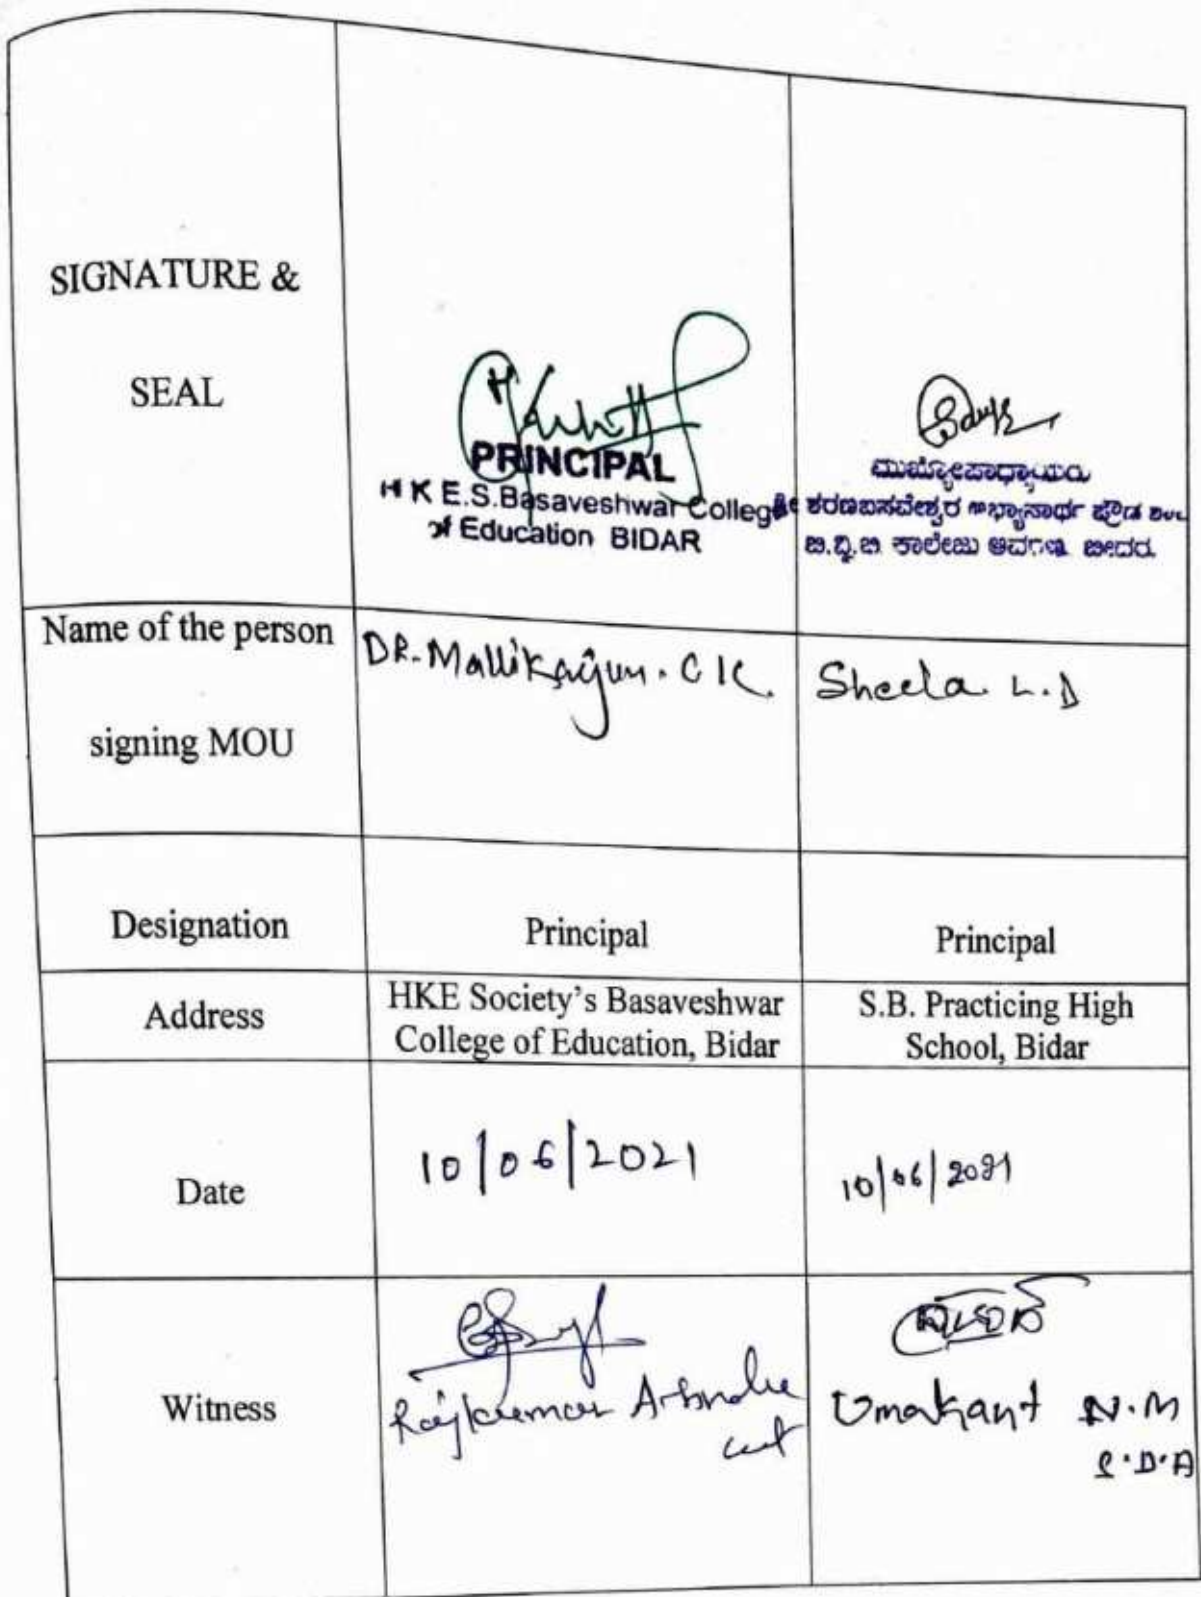 SIGNATURE &
SEAL
PRINCIPAL
H K E.S.Basaveshwar College
of Education BIDAR
ಮುಖ್ಯೋಪಾಧ್ಯಾಯರು
ಶ್ರೀ ಶರಣಬಸವೇಶ್ವರ ಅಭ್ಯಾಸಾರ್ಥ ಪ್ರೌಢ
ಕಾಲೇಜು ಆವರಣ ಬೀದರ
Name of the person
signing MOU
DR. Mallikarjun. C K.
Sheela. L.D
Designation
Principal
Principal
Address
HKE Society's Basaveshwar
College of Education, Bidar
S.B. Practicing High
School, Bidar
Date
10/06/2021
10/06/2021
Witness
Rajkumar
Umakant N.M
S.D.A